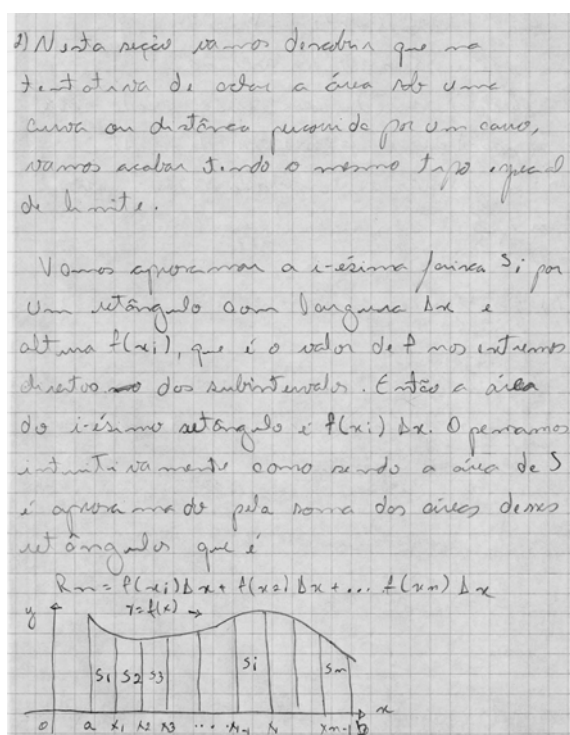 2) Nesta seção vamos descobrir que na
tentativa de achar a área sob uma
curva ou distância percorrida por um carro,
vamos acabar tendo o mesmo tipo especial
de limite.
Vamos aproximar a i-ésima faixa Si por
um retângulo com largura Δx e
altura f(xi), que é o valor de f nos extremos
direitos dos subintervalos. Então a área
do i-ésimo retângulo é f(xi) Δx. O pensamos
intuitivamente como sendo a área de S
é aproximado pela soma das áreas desses
retângulos que é
Rn = f(xi)Δx + f(x2)Δx + ... f(xn) Δx
y y=f(x)
S1 S2 S3 Si Sn
0 a x1 x2 x3 ... xi-1 xi xn-1 b x